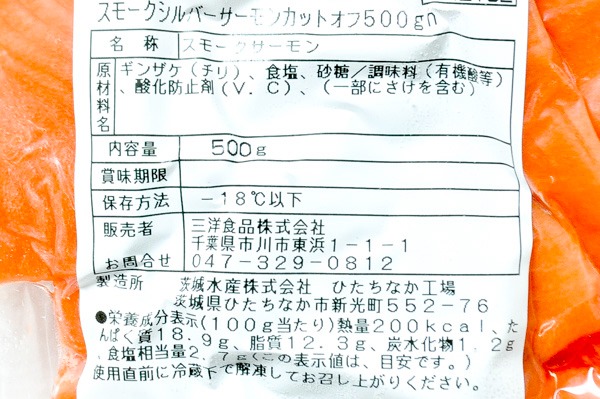 スモークシルバーサーモンカットオフ500gn
名 称 スモークサーモン
原材料名 ギンザケ(チリ)、食塩、砂糖／調味料(有機酸等)
、酸化防止剤(V.C)、(一部にさけを含む)
内容量 500g
賞味期限
保存方法 －18℃以下
販売者 三洋食品株式会社
千葉県市川市東浜1-1-1
お問合せ 047-329-0812
製造所 茨城水産株式会社 ひたちなか工場
茨城県ひたちなか市新光町552-76
●栄養成分表示(100g当たり)熱量200kcal、た
んぱく質18.9g、脂質12.3g、炭水化物1.2g
、食塩相当量2.7g(この表示値は、目安です。)
使用直前に冷蔵下で解凍してお召し上がりください。